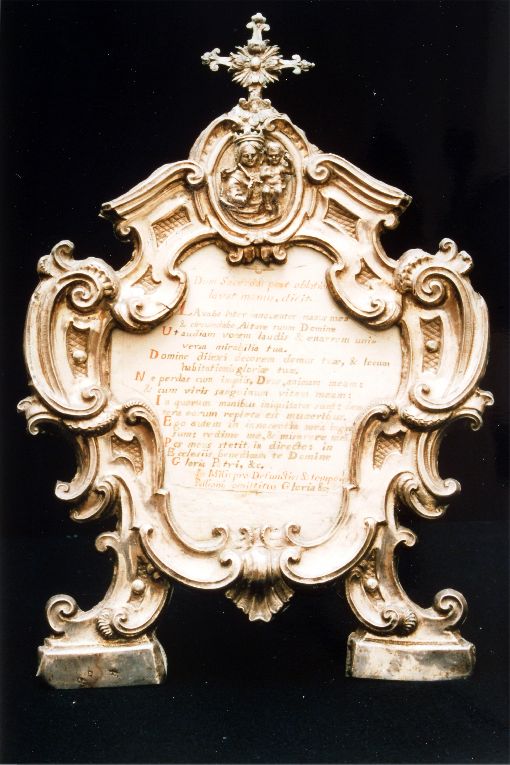 Dum Sacerdos post oblationem
lavat manus, dicit.
LAvabo inter innocentes manus meas
& circumdabo Altare tuum Domine
Ut audiam vocem laudis & enarrem uni-
versa mirabilia tua.
Domine dilexi decorem domus tuæ, & locum
habitationis gloriæ tuæ.
Ne perdas cum impiis, Deus, animam meam:
& cum viris sanguinum vitam meam:
In quorum manibus iniquitates sunt: dex-
tera eorum repleta est muneribus.
Ego autem in innocentia mea ingres-
sus redime me, & miserere mei
Pes meus stetit in directo: in
Ecclesiis benedicam te Domine
Gloria Patri, &c.
In Missis pro Defunctis, & tempore
Gloria